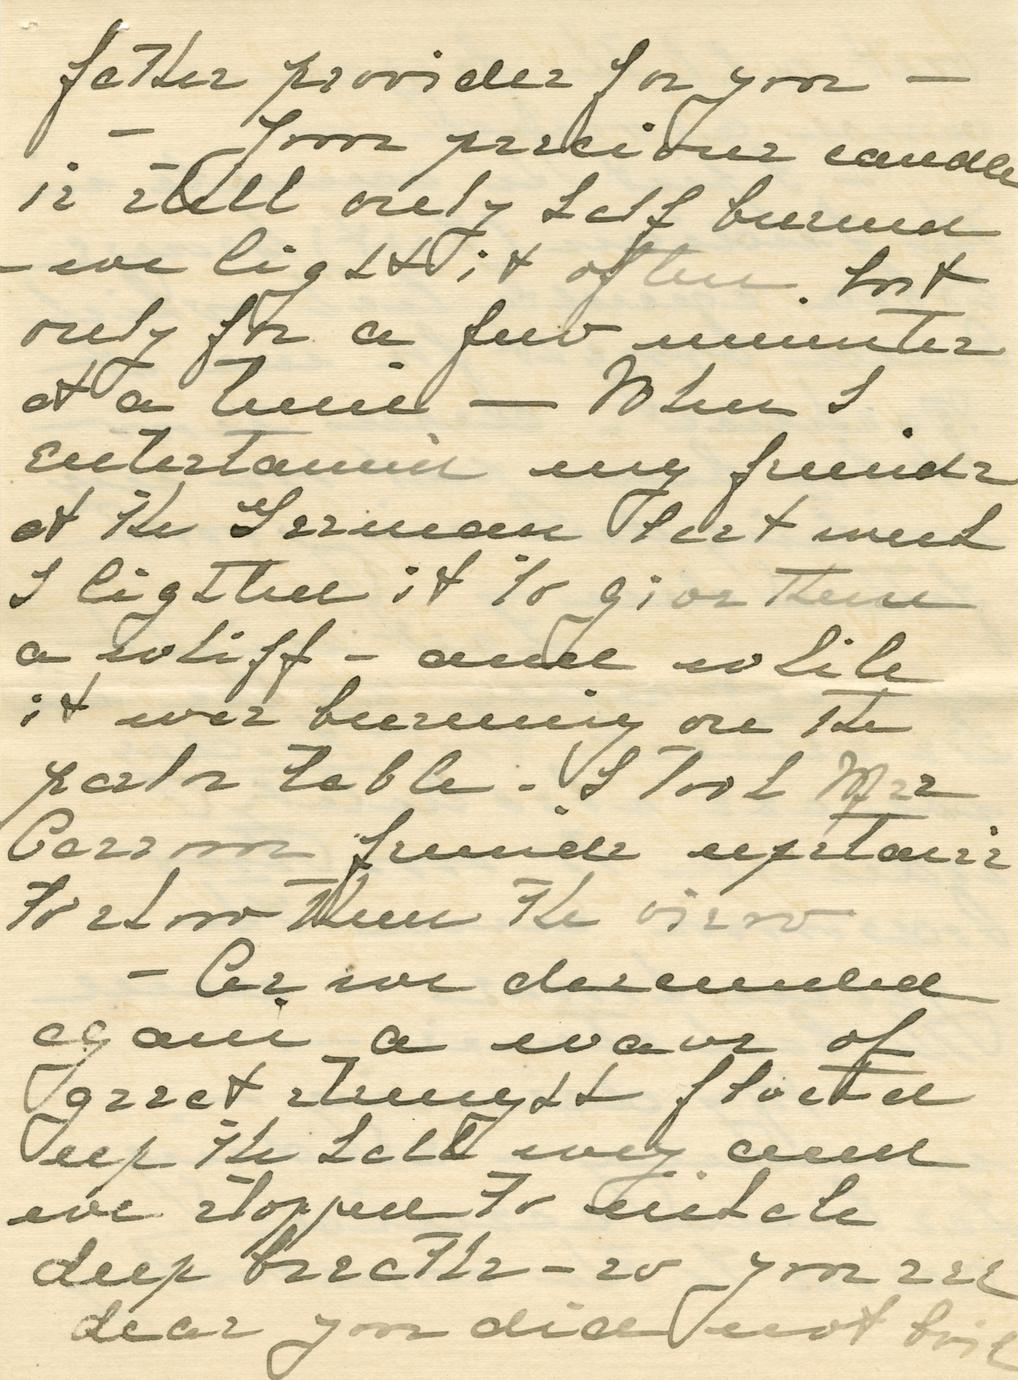 father provides for you —
— Your precious candle
is still only half burned
— we light it often. but
only for a few minutes
at a time — When I
entertain my friends
at the German last week
I lighted it to give them
a whiff - and while
it was burning on the
parlor table - I took Mrs
friends upstairs
to show them the view
- As we descended
again a wave of
great strength floated
up the hall way and
we stopped to inhale
deep breaths - so you see
dear you did not